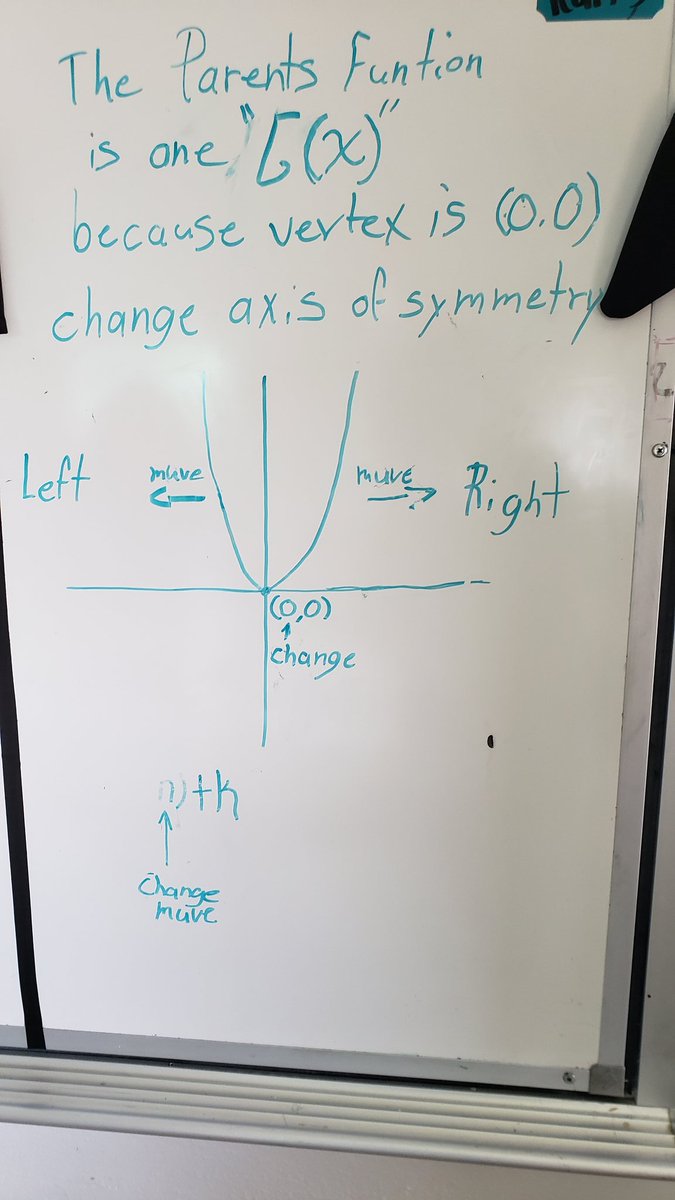 The Parents Funtion
is one "G(x)"
because vertex is (0.0)
change axis of symmetry
Left
muve
muve
Right
(0,0)
change
)+k
Change
muve